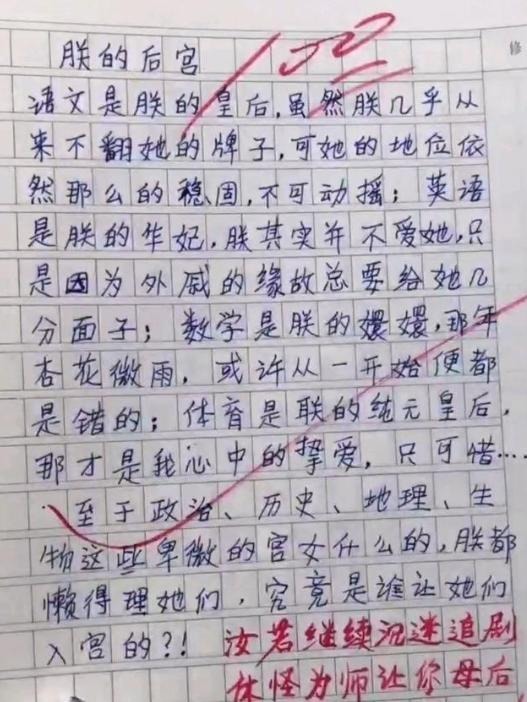 修
100
朕的后宫
语文是朕的皇后,虽然朕几乎从
来不翻她的牌子,可她的地位依
然那么的稳固,不可动摇；英语
是朕的华妃,朕其实并不爱她,只
是因为外戚的缘故总要给她几
分面子；数学是朕的嬛嬛,那年
杏花微雨,或许从一开始便都
是错的；体育是朕的纯元皇后,
那才是我心中的挚爱,只可惜…
至于政治、历史、地理、生
物这些卑微的宫女什么的,朕都
懒得理她们,究竟是谁让她们
入宫的?!
汝若继续沉迷追剧
休怪为师让你母后